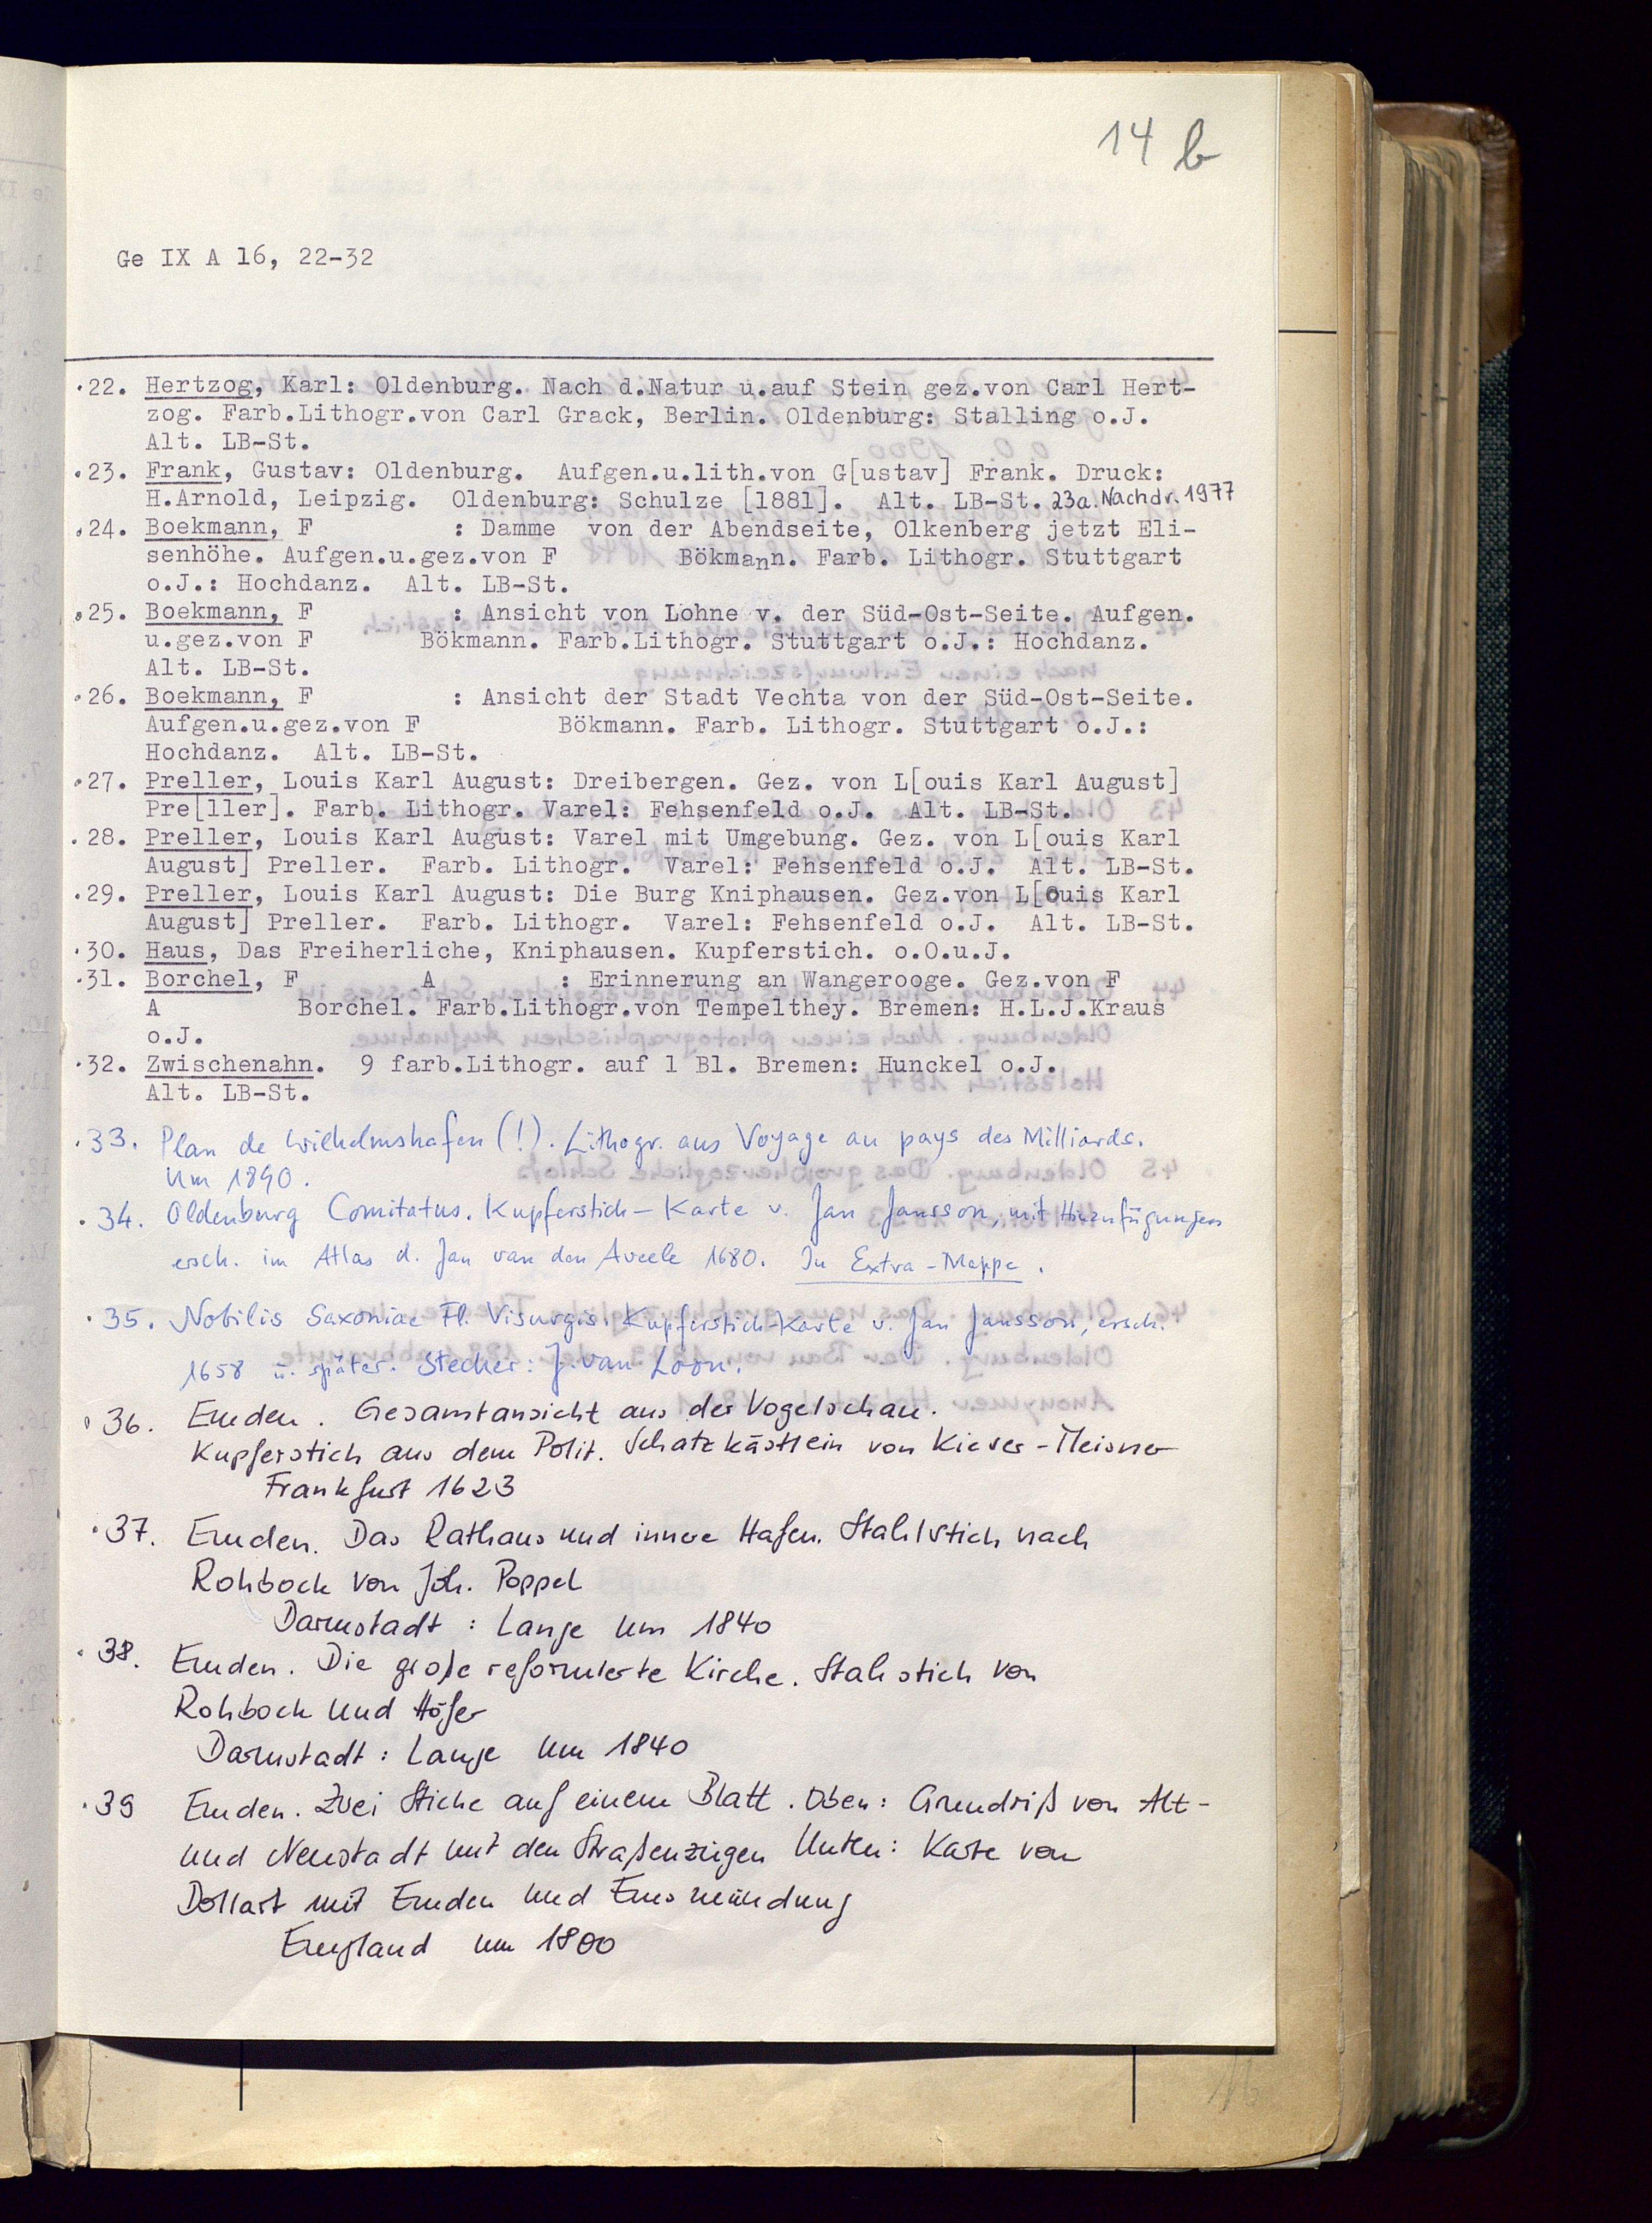 14 b
Ge IX A 16, 22-32
·22. Hertzog, Karl: Oldenburg. Nach d.Natur u.auf Stein gez.von Carl Hert-
zog. Farb.Lithogr.von Carl Grack, Berlin. Oldenburg: Stalling o.J.
Alt. LB-St.
·23. Frank, Gustav: Oldenburg. Aufgen.u.lith.von G[ustav] Frank. Druck:
H.Arnold, Leipzig. Oldenburg: Schulze [1881]. Alt. LB-St. 23a. Nachdr. 1977
·24. Boekmann, F : Damme von der Abendseite, Olkenberg jetzt Eli-
senhöhe. Aufgen.u.gez.von F Bökmann. Farb. Lithogr. Stuttgart
o.J.: Hochdanz. Alt. LB-St.
·25. Boekmann, F : Ansicht von Lohne v. der Süd-Ost-Seite. Aufgen.
u.gez.von F Bökmann. Farb.Lithogr. Stuttgart o.J.: Hochdanz.
Alt. LB-St.
·26. Boekmann, F : Ansicht der Stadt Vechta von der Süd-Ost-Seite.
Aufgen.u.gez.von F Bökmann. Farb. Lithogr. Stuttgart o.J.:
Hochdanz. Alt. LB-St.
·27. Preller, Louis Karl August: Dreibergen. Gez. von L[ouis Karl August]
Pre[ller]. Farb. Lithogr. Varel: Fehsenfeld o.J. Alt. LB-St.
·28. Preller, Louis Karl August: Varel mit Umgebung. Gez. von L[ouis Karl
August] Preller. Farb. Lithogr. Varel: Fehsenfeld o.J. Alt. LB-St.
·29. Preller, Louis Karl August: Die Burg Kniphausen. Gez.von L[ouis Karl
August] Preller. Farb. Lithogr. Varel: Fehsenfeld o.J. Alt. LB-St.
·30. Haus, Das Freiherliche, Kniphausen. Kupferstich. o.O.u.J.
·31. Borchel, F A : Erinnerung an Wangerooge. Gez.von F
A Borchel. Farb.Lithogr.von Tempelthey. Bremen: H.L.J.Kraus
o.J.
·32. Zwischenahn. 9 farb.Lithogr. auf 1 Bl. Bremen: Hunckel o.J.
Alt. LB-St.
·33. Plan de Wilhelmshafen (!). Lithogr. aus Voyage au pays des Milliards.
Um 1890.
·34. Oldenburg Comitatus. Kupferstich-Karte v. Jan Jansson, mit Hinzufügungen
ersch. im Atlas d. Jan van den Aveele 1680. In Extra-Mappe.
·35. Nobilis Saxoniae Fl. Visurgis. Kupferstich-Karte v. Jan Jansson, ersch.
1658 u. später. Stecher: J. van Loon.
·36. Emden. Gesamtansicht aus der Vogelschau.
Kupferstich aus dem Polit. Schatzkästlein von Kieser-Meisner
Frankfurt 1623
·37. Emden. Das Rathaus und innere Hafen. Stahlstich nach
Rohbock von Joh. Poppel
Darmstadt: Lange um 1840
·38. Emden. Die große reformierte Kirche. Stahlstich von
Rohbock und Höfer
Darmstadt: Lange um 1840
·39 Emden. Zwei Stiche auf einem Blatt. Oben: Grundriß von Alt-
und Neustadt mit den Straßenzügen Unten: Karte vom
Dollart mit Emden und Emsmündung
England um 1800